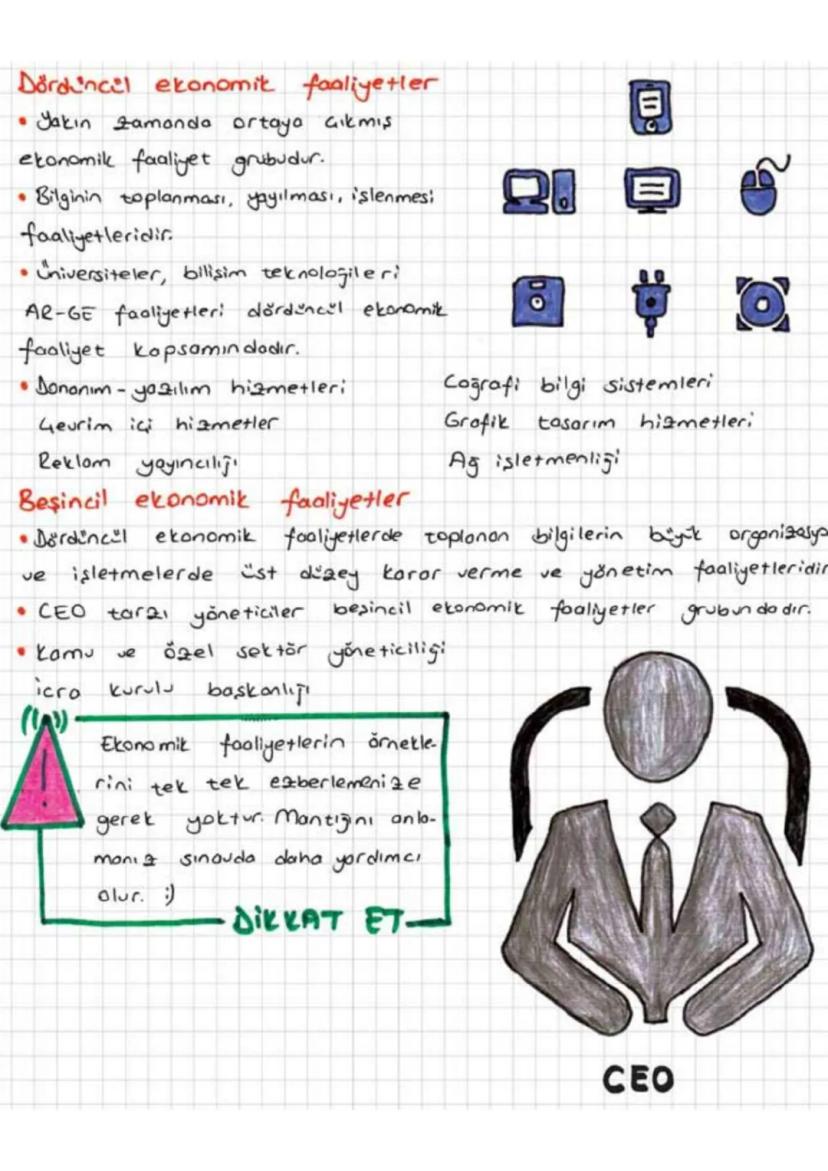 Dördüncül ekonomik faaliyetler
• Yakın zamanda ortaya çıkmış
ekonomik faaliyet grubudur.
• Bilginin toplanması, yayılması, işlenmesi
faaliyetleridir.
• Üniversiteler, bilişim teknolojileri
AR-GE faaliyetleri dördüncül ekonomik
faaliyet kapsamındadır.
• Donanım - yazılım hizmetleri
Çevrim içi hizmetler
Reklam yayıncılığı
Coğrafi bilgi sistemleri
Grafik tasarım hizmetleri
Ağ işletmenliği
Beşincil ekonomik faaliyetler
• Dördüncül ekonomik faaliyetlerde toplanan bilgilerin büyük organizasyo
ve işletmelerde üst düzey karar verme ve yönetim faaliyetleridir
• CEO tarzı yöneticiler beşincil ekonomik faaliyetler grubundadır.
• Kamu ve özel sektör yöneticiliği
icra kurulu başkanlığı
Ekonomik faaliyetlerin örnekle-
rini tek tek ezberlemenize
gerek yoktur. Mantığını anla-
manız sınavda daha yardımcı
olur. :)
DİKKAT ET
CEO